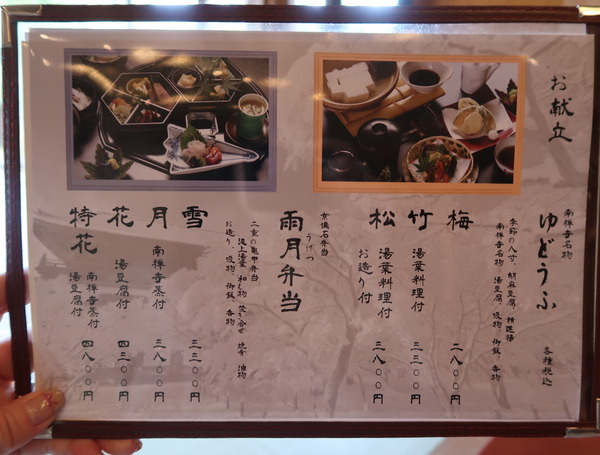 お献立
南禅寺名物
ゆどうふ
各種税込
季節の八寸、胡麻豆腐、精進揚
南禅寺名物 湯豆腐、吸物、御飯、香物
梅 二八〇〇円
竹 湯葉料理付 三三〇〇円
松 湯葉料理付 お造り付 三八〇〇円
有機石弁当
うげつ
雨月弁当
二重の亀甲弁当
汲上湯葉、和もの、焚き合せ、炊分、油物
お造り、吸物、御飯、香物
雪 三三〇〇円
月 南禅寺蒸付 三八〇〇円
花 湯豆腐付 四三〇〇円
特花 南禅寺蒸付 湯豆腐付 四八〇〇円